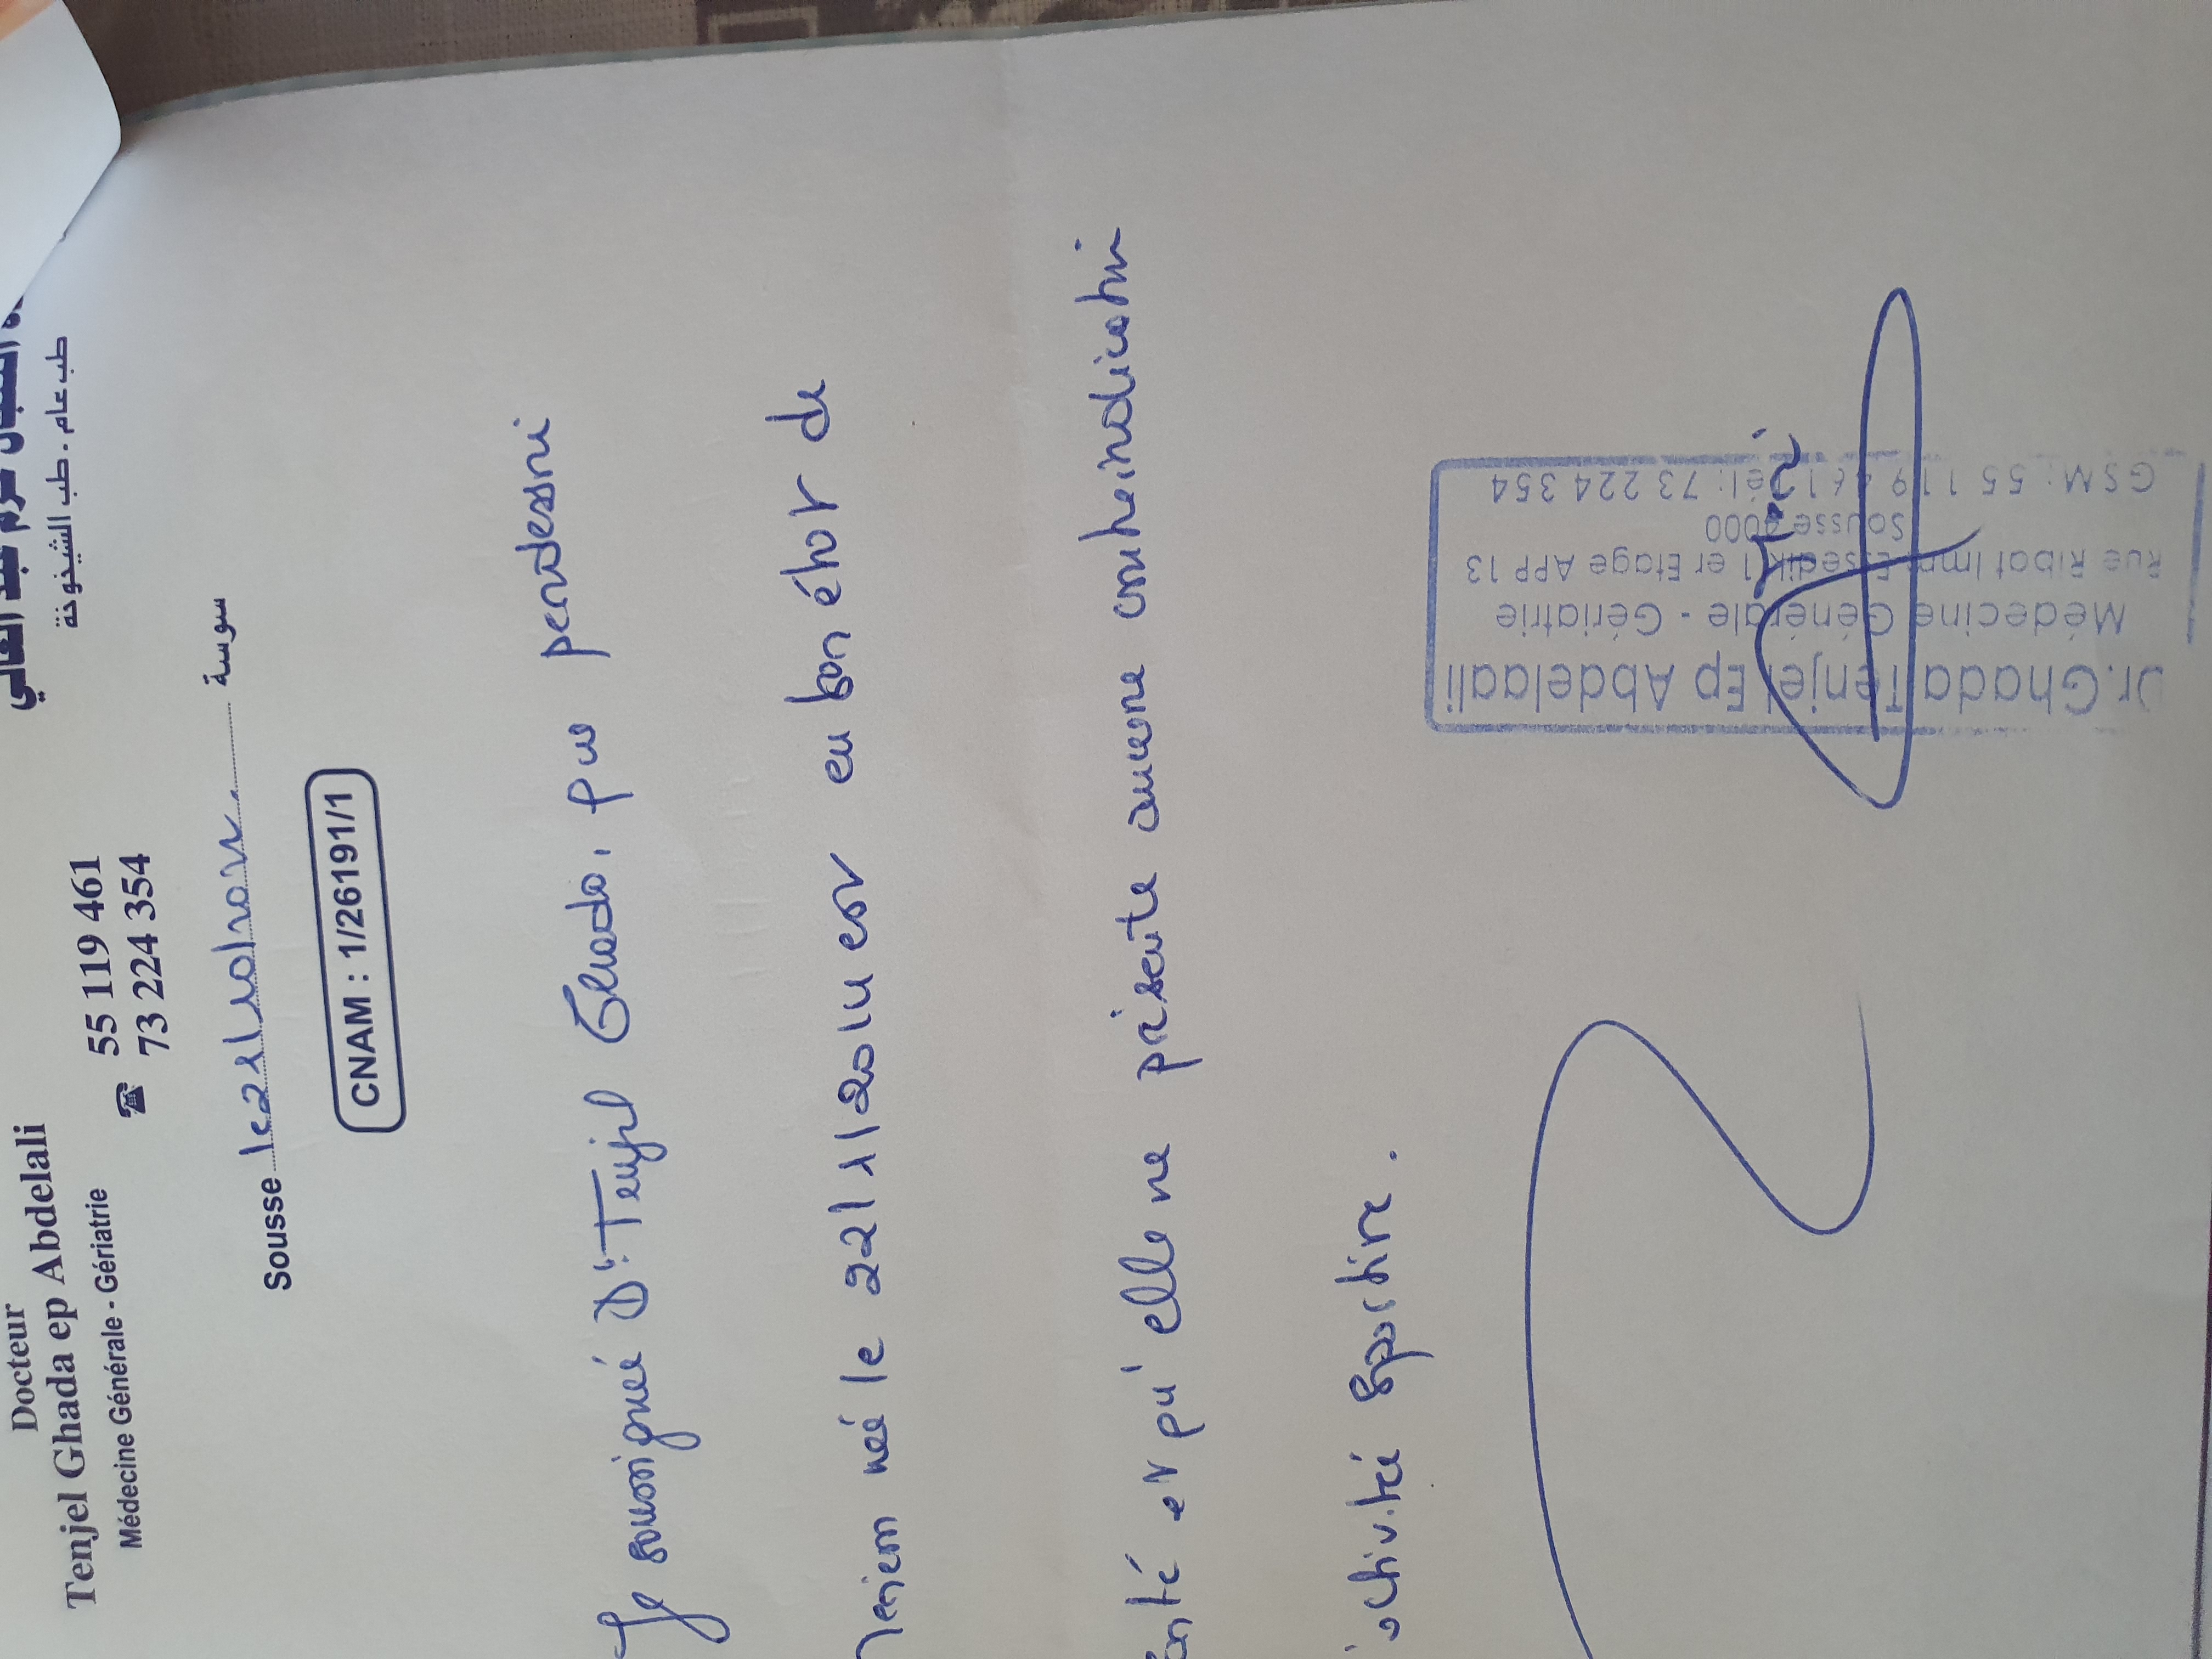 Docteur
Tenjel Ghada ep Abdelali
Médecine Générale - Gériatrie
☎ 55 119 461
73 224 354
عبد العالي
طب عام . طب الشيخوخة
Sousse le سوسة
CNAM : 1/26191/1
Je soussigné Dr Tenjel Ghada, que
née le 22/1/2014 est en bon état de
anté et qu'elle ne présente aucune contreindication
activité sportive.
Dr.Ghada Tenjel Ep Abdelaali
Médecine Générale - Gériatrie
Rue Ribat Imm Essedik 1 er Etage APP 13
Sousse 4000
GSM : 55 119 461 Tél: 73 224 354